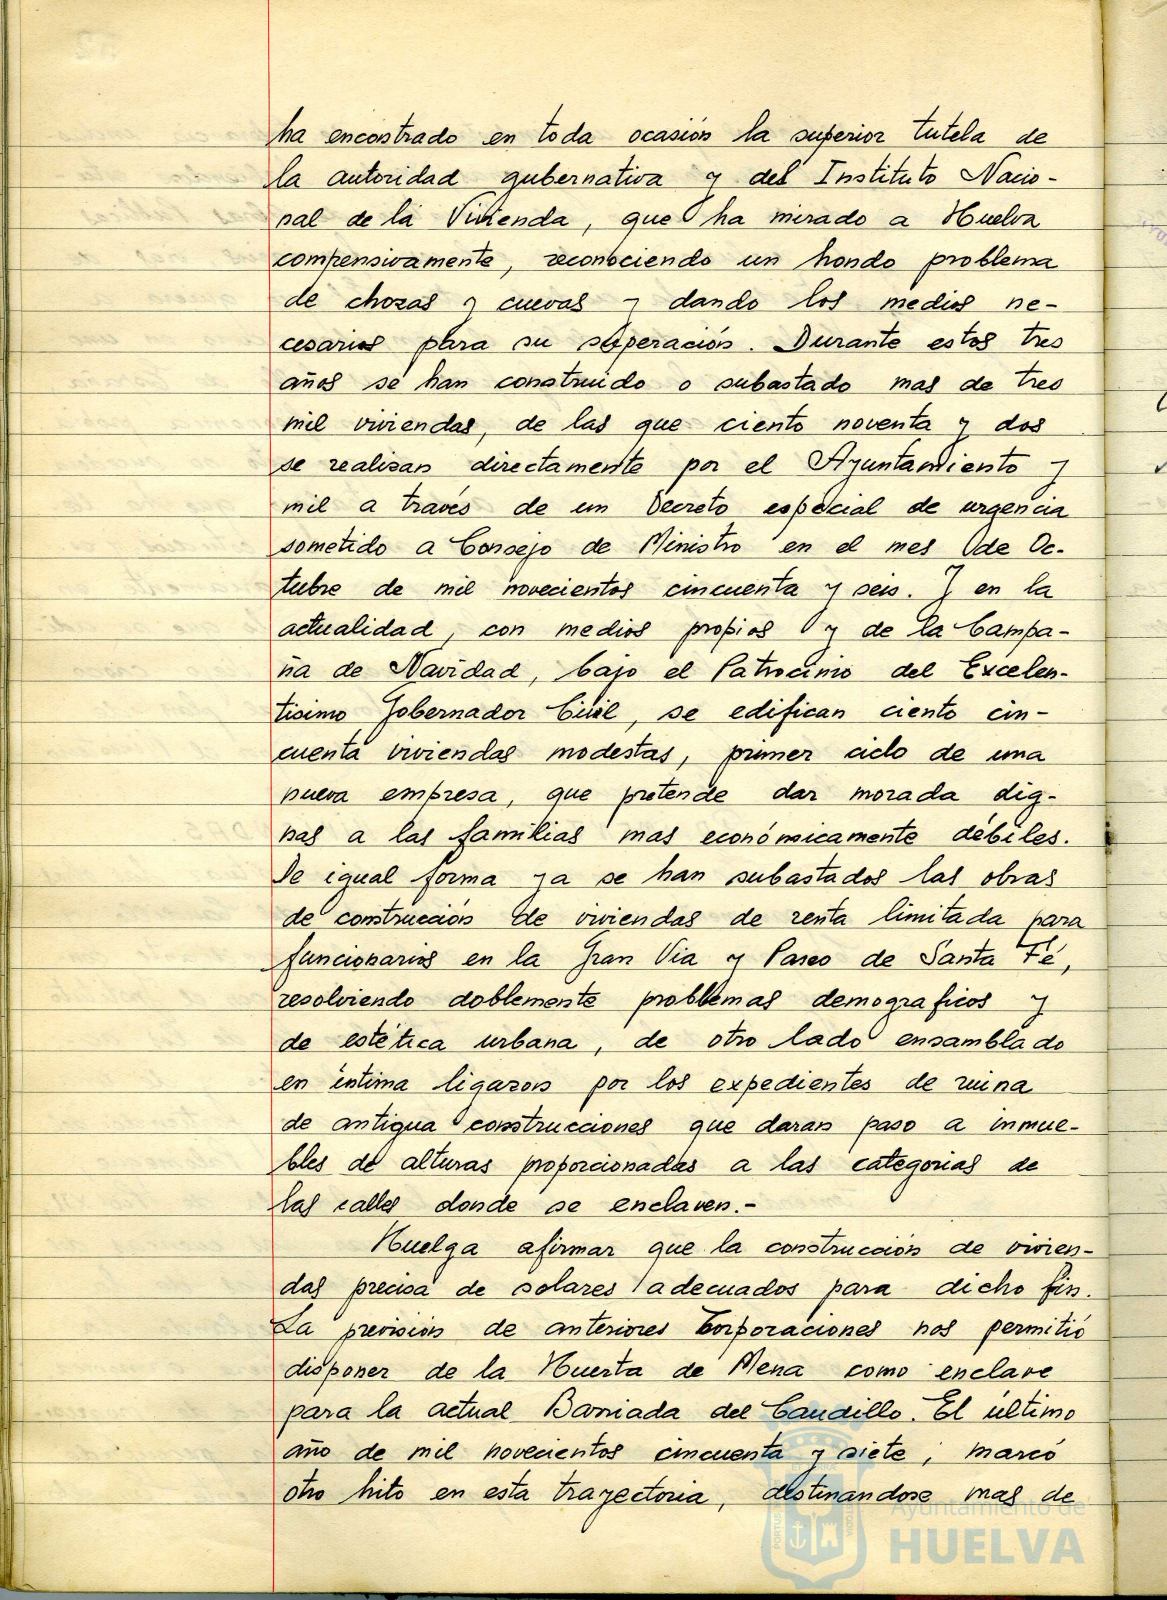 ha encontrado en toda ocasión la superior tutela de
la autoridad gubernativa y del Instituto Nacio-
nal de la Vivienda, que ha mirado a Huelva
compensivamente, reconociendo un hondo problema
de chozas y cuevas y dando los medios ne-
cesarios para su superación. Durante estos tres
años se han construido o subastado mas de tres
mil viviendas, de las que ciento noventa y dos
se realizan directamente por el Ayuntamiento y
mil a través de un Decreto especial de urgencia
sometido a Consejo de Ministro en el mes de Oc-
tubre de mil novecientos cincuenta y seis. Y en la
actualidad, con medios propios y de la Campa-
ña de Navidad, bajo el Patrocinio del Excelen-
tisimo Gobernador Civil, se edifican ciento cin-
cuenta viviendas modestas, primer ciclo de una
nueva empresa, que pretende dar morada dig-
nas a las familias mas económicamente débiles.
De igual forma ya se han subastados las obras
de construcción de viviendas de renta limitada para
funcionarios en la Gran Via y Paseo de Santa Fé,
resolviendo doblemente problemas demograficos y
de estética urbana, de otro lado ensamblado
en intima ligazon por los expedientes de ruina
de antigua construcciones que daran paso a inmue-
bles de alturas proporcionadas a las categorias de
las calles donde se enclaven.-
Huelga afirmar que la construcción de vivien-
das precisa de solares adecuados para dicho fin.
La previsión de anteriores Corporaciones nos permitió
disponer de la Huerta de Mena como enclave
para la actual Barriada del Caudillo. El último
año de mil novecientos cincuenta y siete, marcó
otro hito en esta trayectoria, destinandose mas de
Ayuntamiento de
HUELVA